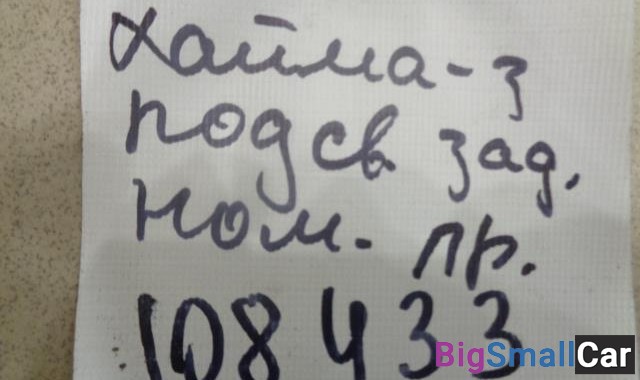 Хайма-3
подсв зад.
ном. пр.
108433
BigSmallCar